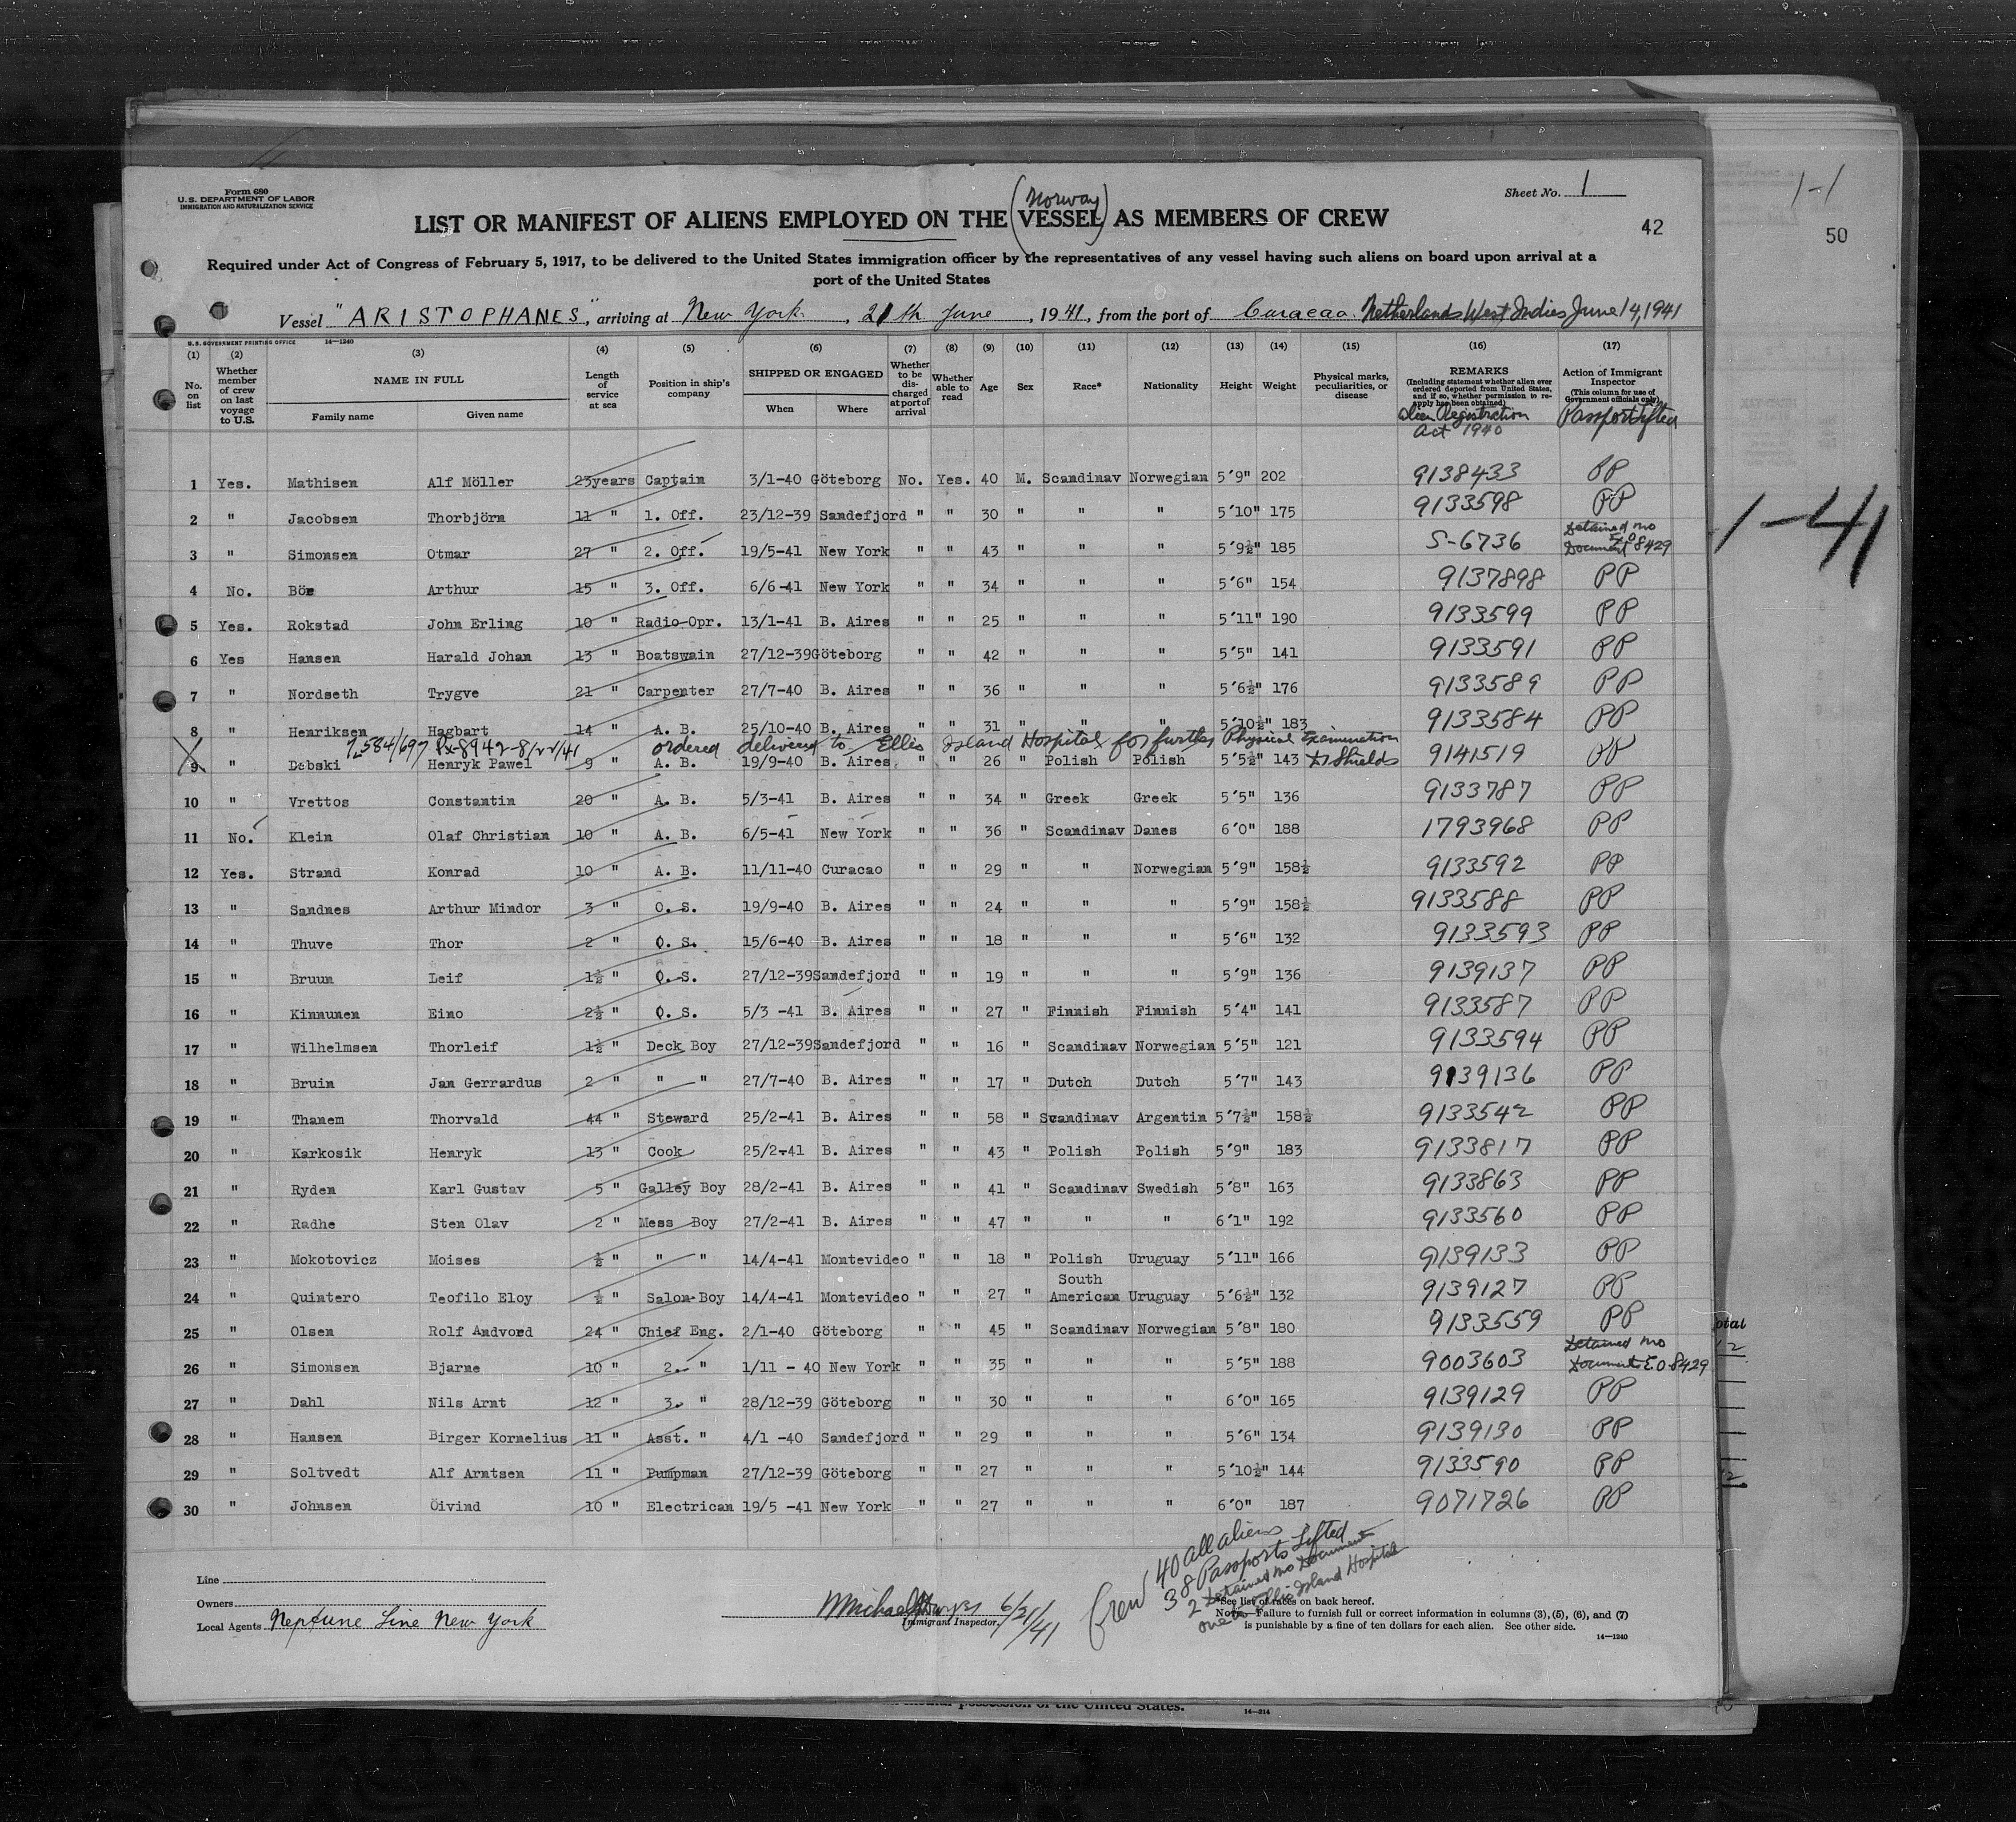 Form 680
U.S. DEPARTMENT OF LABOR
IMMIGRATION AND NATURALIZATION SERVICE
Sheet No. 1
1-1
(Norway)
LIST OR MANIFEST OF ALIENS EMPLOYED ON THE VESSEL AS MEMBERS OF CREW
42
50
Required under Act of Congress of February 5, 1917, to be delivered to the United States immigration officer by the representatives of any vessel having such aliens on board upon arrival at a
port of the United States
Vessel "ARISTOPHANES", arriving at New York, 21th June, 1941, from the port of Curacao Netherlands West Indies June 14, 1941
U.S. GOVERNMENT PRINTING OFFICE 14-1240
(1) (2) (3) (4) (5) (6) (7) (8) (9) (10) (11) (12) (13) (14) (15) (16) (17)
No. on list
Whether member of crew on last voyage to U.S.
NAME IN FULL
Family name
Given name
Length of service at sea
Position in ship's company
SHIPPED OR ENGAGED
When
Where
Whether to be discharged at port of arrival
Whether able to read
Age
Sex
Race*
Nationality
Height
Weight
Physical marks, peculiarities, or disease
REMARKS
(Including statement whether alien ever ordered deported from United States, and if so, whether permission to reapply has been obtained)
Alien Registration Act 1940
Action of Immigrant Inspector
(This column for use of Government officials only)
Passport Lifted
1 Yes. Mathisen Alf Möller 23years Captain 3/1-40 Göteborg No. Yes. 40 M. Scandinav Norwegian 5'9" 202 9138433 PP
2 " Jacobsen Thorbjörn 11 " 1. Off. 23/12-39 Sandefjord " " 30 " " " 5'10" 175 9133598 PP
3 " Simonsen Otmar 27 " 2. Off. 19/5-41 New York " " 43 " " " 5'9½" 185 S-6736 Detained no Document EO 8429
1-41
4 No. Böe Arthur 15 " 3. Off. 6/6-41 New York " " 34 " " " 5'6" 154 9137898 PP
5 Yes. Rokstad John Erling 10 " Radio Opr. 13/1-41 B. Aires " " 25 " " " 5'11" 190 9133599 PP
6 Yes Hansen Harald Johan 13 " Boatswain 27/12-39 Göteborg " " 42 " " " 5'5" 141 9133591 PP
7 " Nordseth Trygve 21 " Carpenter 27/7-40 B. Aires " " 36 " " " 5'6½" 176 9133589 PP
8 " Henriksen Hagbart 14 " A. B. 25/10-40 B. Aires " " 31 " " " 5'10½" 183 9133584 PP
ordered delivered to Ellis Island Hospital for further Physical Examination
9 " Debski Henryk Pawel 9 " A. B. 19/9-40 B. Aires " " 26 " Polish Polish 5'5½" 143 Shields 9141519 PP
10 " Vrettos Constantin 20 " A. B. 5/3-41 B. Aires " " 34 " Greek Greek 5'5" 136 9133787 PP
11 No. Klein Olaf Christian 10 " A. B. 6/5-41 New York " " 36 " Scandinav Danes 6'0" 188 1793968 PP
12 Yes. Strand Konrad 10 " A. B. 11/11-40 Curacao " " 29 " " Norwegian 5'9" 158½ 9133592 PP
13 " Sandnes Arthur Mindor 3 " O. S. 19/9-40 B. Aires " " 24 " " " 5'9" 158½ 9133588 PP
14 " Thuve Thor 2 " O. S. 15/6-40 B. Aires " " 18 " " " 5'6" 132 9133593 PP
15 " Bruun Leif 1½ " O. S. 27/12-39 Sandefjord " " 19 " " " 5'9" 136 9139137 PP
16 " Kinnunen Eino 2½ " O. S. 5/3 -41 B. Aires " " 27 " Finnish Finnish 5'4" 141 9133587 PP
17 " Wilhelmsen Thorleif 1½ " Deck Boy 27/12-39 Sandefjord " " 16 " Scandinav Norwegian 5'5" 121 9133594 PP
18 " Bruin Jan Gerrardus 2 " " " 27/7-40 B. Aires " " 17 " Dutch Dutch 5'7" 143 9139136 PP
19 " Thanem Thorvald 44 " Steward 25/2-41 B. Aires " " 58 " Scandinav Argentin 5'7½" 158½ 9133542 PP
20 " Karkosik Henryk 13 " Cook 25/2-41 B. Aires " " 43 " Polish Polish 5'9" 183 9133817 PP
21 " Ryden Karl Gustav 5 " Galley Boy 28/2-41 B. Aires " " 41 " Scandinav Swedish 5'8" 163 9133863 PP
22 " Radhe Sten Olav 2 " Mess Boy 27/2-41 B. Aires " " 47 " " " 6'1" 192 9133560 PP
23 " Mokotovicz Moises ½ " " " 14/4-41 Montevideo " " 18 " Polish Uruguay 5'11" 166 9139133 PP
24 " Quintero Teofilo Eloy ½ " Salon Boy 14/4-41 Montevideo " " 27 " South American Uruguay 5'6½" 132 9139127 PP
25 " Olsen Rolf Andvord 24 " Chief Eng. 2/1-40 Göteborg " " 45 " Scandinav Norwegian 5'8" 180 9133559 PP
26 " Simonsen Bjarne 10 " 2. " 1/11 - 40 New York " " 35 " " " 5'5" 188 9003603 Detained no Document E.O. 8429
27 " Dahl Nils Arnt 12 " 3. " 28/12-39 Göteborg " " 30 " " " 6'0" 165 9139129 PP
28 " Hansen Birger Kornelius 11 " Asst. " 4/1 -40 Sandefjord " " 29 " " " 5'6" 134 9139130 PP
29 " Soltvedt Alf Arntsen 11 " Pumpman 27/12-39 Göteborg " " 27 " " " 5'10½" 144 9133590 PP
30 " Johnsen Öivind 10 " Electrican 19/5 -41 New York " " 27 " " " 6'0" 187 9071726 PP
Crew 40 all aliens
38 Passports Lifted
2 Detained no Document
one to Ellis Island Hospital
Line
Owners
Local Agents Neptune Line New York
Michael 6/21/41
Immigrant Inspector.
*See list of races on back hereof.
Note.—Failure to furnish full or correct information in columns (3), (5), (6), and (7)
is punishable by a fine of ten dollars for each alien. See other side.
14—1240
possession of the United States.
14—214